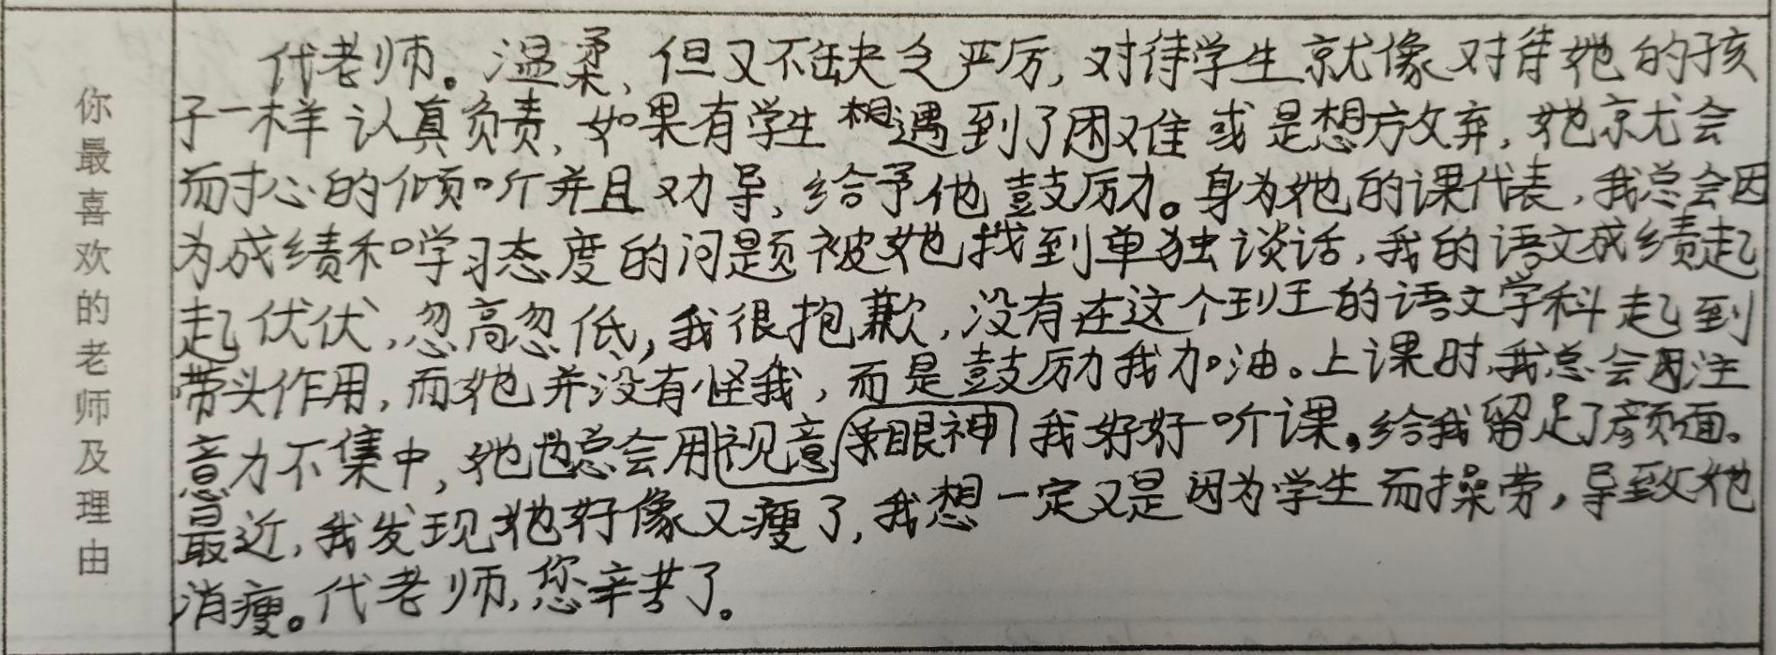 你最喜欢的老师及理由
代老师。温柔，但又不缺乏严厉，对待学生就像对待她的孩
子一样认真负责，如果有学生想遇到了困难或是想放弃，她就会
耐心的倾听并且劝导，给予他鼓励。身为她的课代表，我总会因
为成绩和学习态度的问题被她找到单独谈话，我的语文成绩起
起伏伏，忽高忽低，我很抱歉，没有在这个到王的语文学科起到
带头作用，而她并没有怪我，而是鼓励我加油。上课时，我总会因注
意力不集中，她也总会用视意眼神我好好听课，给我留足了颜面。
最近，我发现她好像又瘦了，我想一定又是因为学生而操劳，导致她
消瘦。代老师，您辛苦了。